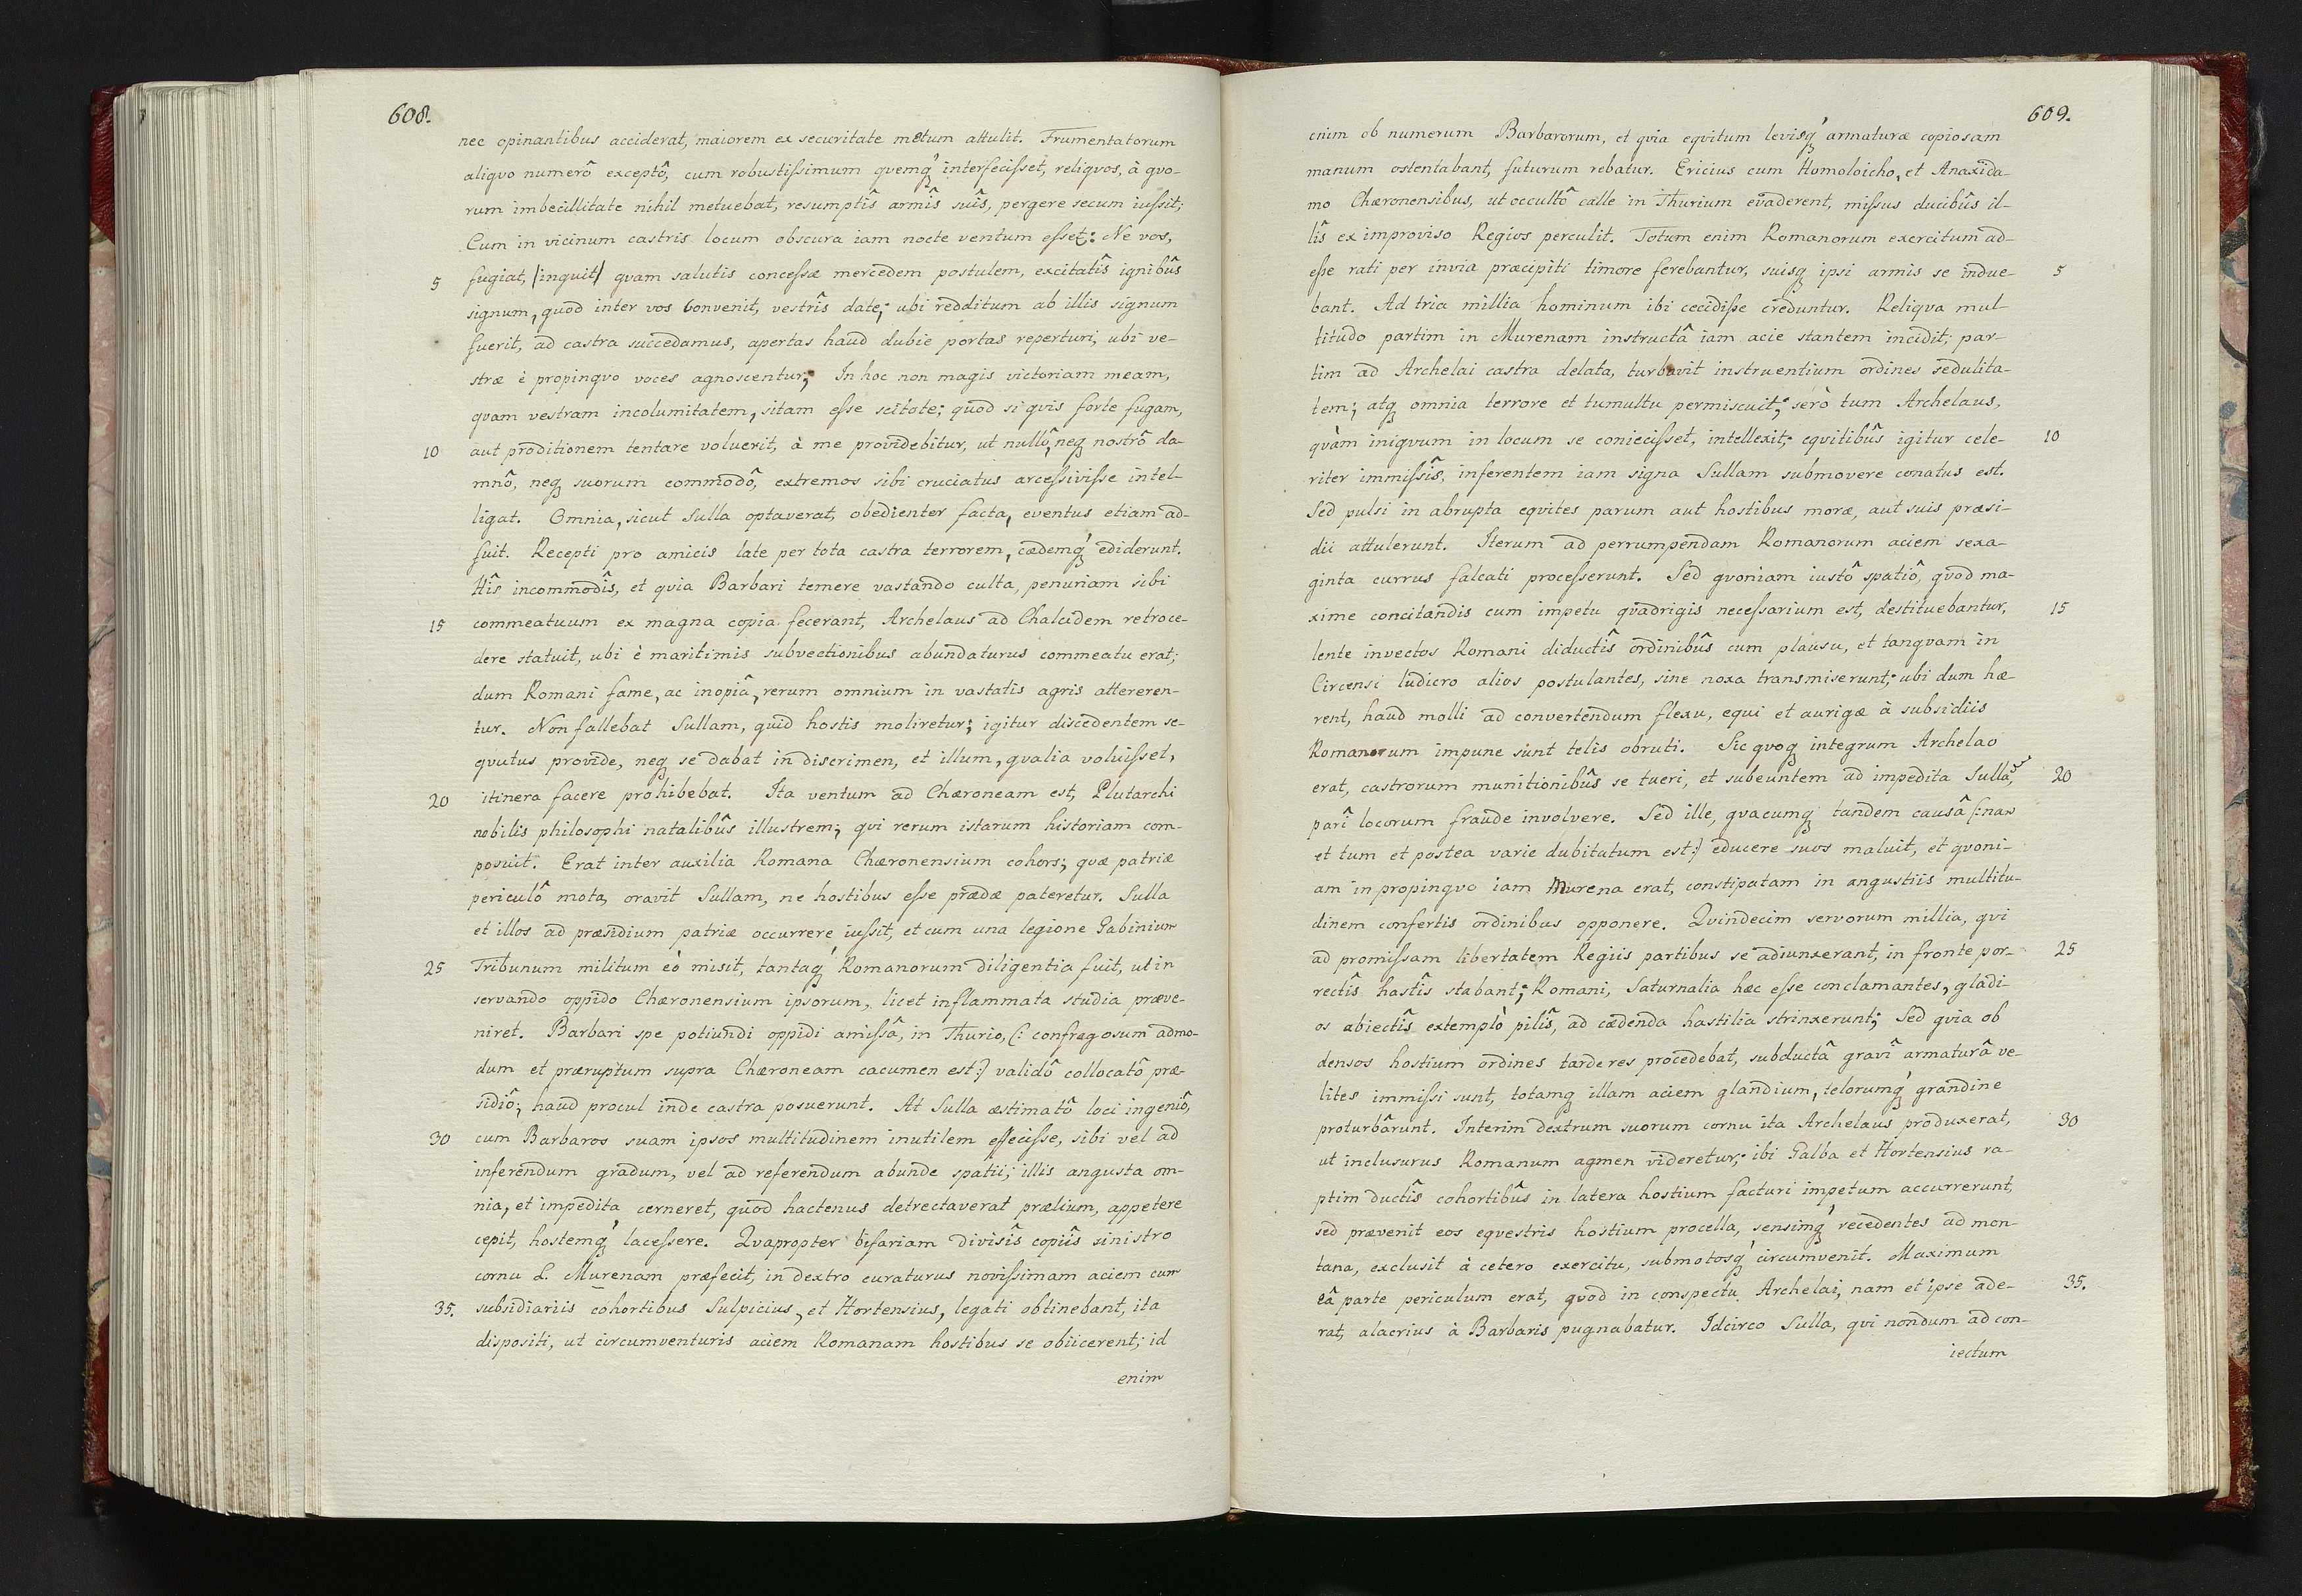 608.
nec opinantibus acciderat, maiorem ex securitate metum attulit. Frumentatorum
aliquo numerô exceptô, cum robustissimum quemq́ interfecisset, reliquos, à quo-
rum imbecillitate nihil metuebat, resumptîs armîs suîs, pergere secum iussit;
Cum in vicinum castris locum obscura iam nocte ventum esset: Ne vos,
5 fugiat, /inquit/ quam salutis concessæ mercedem postulem, excitatîs ignibûs
signum, quod inter vos convenit, vestrîs date; ubi redditum ab illis signum
fuerit, ad castra succedamus, apertas haud dubie portas reperturi, ubi ve-
stræ è propinquo voces agnoscentur; In hoc non magis victoriam meam,
quam vestram incolumitatem, sitam esse scitote; quod si quis forte fugam,
10 aut proditionem tentare voluerit, à me providebitur, ut nullô, neq nostrô da-
mnô, neq suorum commodô, extremos sibi cruciatus arcessivisse intel-
ligat. Omnia, sicut Sulla optaverat, obedienter facta, eventus etiam ad-
fuit. Recepti pro amicis late per tota castra terrorem, cædemq́ ediderunt.
Hîs incommodîs, et quia Barbari temere vastando culta, penuriam sibi
15 commeatuum ex magna copia fecerant, Archelaus ad Chalcidem retroce-
dere statuit, ubi è maritimis subvectionibus abundaturus commeatu erat;
dum Romani fame, ac inopiâ, rerum omnium in vastatis agris attereren-
tur. Non fallebat Sullam, quid hostis moliretur; igitur discedentem se-
qvutus provide, neq se dabat in discrimen, et illum, qvalia voluisset,
20 itinera facere prohibebat. Ita ventum ad Chæroneam est, Plutarchi
nobilis philosophi natalibûs illustrem; qvi rerum istarum historiam com-
posuit. Erat inter auxilia Romana Chæronensium cohors; quæ patriæ
periculô mota, oravit Sullam, ne hostibus esse prædæ pateretur. Sulla
et illos ad præsidium patriæ occurrere iussit, et cum una legione Gabinium
25 Tribunum militum eò misit, tantaq́ Romanorum diligentia fuit, ut in
servando oppido Chæronensium ipsorum, licet inflammata studia præve-
niret. Barbari spe potiundi oppidi amissâ, in Thurio, (: confragosum admo-
dum et præruptum supra Chæroneam cacumen est:) validô collocatô præ-
sidiô; haud procul inde castra posuerunt. At Sulla æstimatô loci ingeniô,
30 cum Barbaros suam ipsos multitudinem inutilem effecisse, sibi vel ad
inferendum gradum, vel ad referendum abunde spatii; illis angusta om-
nia, et impedita cerneret, quod hactenus detrectaverat prælium, appetere
cepit, hostemq́ lacessere. Qvapropter bifariam divisîs copiîs sinistro
cornu L. Murenam præfecit, in dextro curaturus novissimam aciem cum
35. subsidiariis cohortibus Sulpicius, et Hortensius, legati obtinebant, ita
dispositi, ut circumventuris aciem Romanam hostibus se obiicerent; id
enim
609.
enim ob numerum Barbarorum, et qvia eqvitum levisq́ armaturæ copiosam
manum ostentabant, futurum rebatur. Ericius cum Homoloicho, et Anaxida-
mo Chæronensibus, ut occultô calle in Thurium evaderent, missus ducibûs il-
lîs ex improviso Regios perculit. Totum enim Romanorum exercitum ad-
esse rati per invia præcipiti timore ferebantur, suisq ipsi armis se indue- 5
bant. Ad tria millia hominum ibi cecidisse creduntur. Reliqva mul-
titudo partim in Murenam instructâ iam acie stantem incidit; par-
tim ad Archelai castra delata, turbavit instruentium ordines sedulita-
tem; atq omnia terrore et tumultu permiscuit; serò tum Archelaus,
qvàm iniqvum in locum se coniecisset, intellexit; eqvitibûs igitur cele- 10
riter immissîs, inferentem iam signa Sullam submovere conatus est.
Sed pulsi in abrupta eqvites parum aut hostibus moræ, aut suis præsi-
dii attulerunt. Iterum ad perrumpendam Romanorum aciem sexa-
ginta currus falcati processerunt. Sed qvoniam iustô spatiô, qvod ma-
xime concitandis cum impetu qvadrigis necessarium est, destituebantur, 15
lente invectos Romani diductîs ordinibûs cum plausu, et tanqvam in
Circensi ludicro alios postulantes, sine noxa transmiserunt; ubi dum hæ-
rent, haud molli ad convertendum flexu, equi et aurigæ à subsidiis
Romanorum impune sunt telis obruti. Sic qvoq integrum Archelao
erat, castrorum munitionibûs se tueri, et subeuntem ad impedita Sullã, 20
parî locorum fraude involvere. Sed ille, qvacumq tandem causâ (:nam
et tum et postea varie dubitatum est:) educere suos maluit, et qvoni-
am in propinqvo iam Murena erat, constipatam in angustiis multitu-
dinem confertis ordinibus opponere. Qvindecim servorum millia, qvi
ad promissam libertatem Regiis partibus se adiunxerant, in fronte por- 25
rectîs hastîs stabant; Romani, Saturnalia hæc esse conclamantes, gladi-
os abiectîs extemplò pilîs, ad cædenda hastilia strinxerunt; Sed qvia ob
densos hostium ordines tarde res procedebat, subductâ gravî armaturâ ve-
lites immissi sunt, totamq illam aciem glandium, telorumq́ grandine
proturbârunt. Interim dextrum suorum cornu ita Archelaus produxerat, 30
ut inclusurus Romanum agmen videretur; ibi Galba et Hortensius ra-
ptim ductîs cohortibûs in latera hostium facturi impetum accurrerunt,
sed prævenit eos eqvestris hostium procella, sensimq́ recedentes ad mon-
tana, exclusit à cetero exercitu, submotosq́ circumvenit. Maximum
eâ parte periculum erat, qvod in conspectu Archelai, nam et ipse ade- 35.
rat, alacrius à Barbaris pugnabatur. Idcirco Sulla, qvi nondum ad con-
iectum